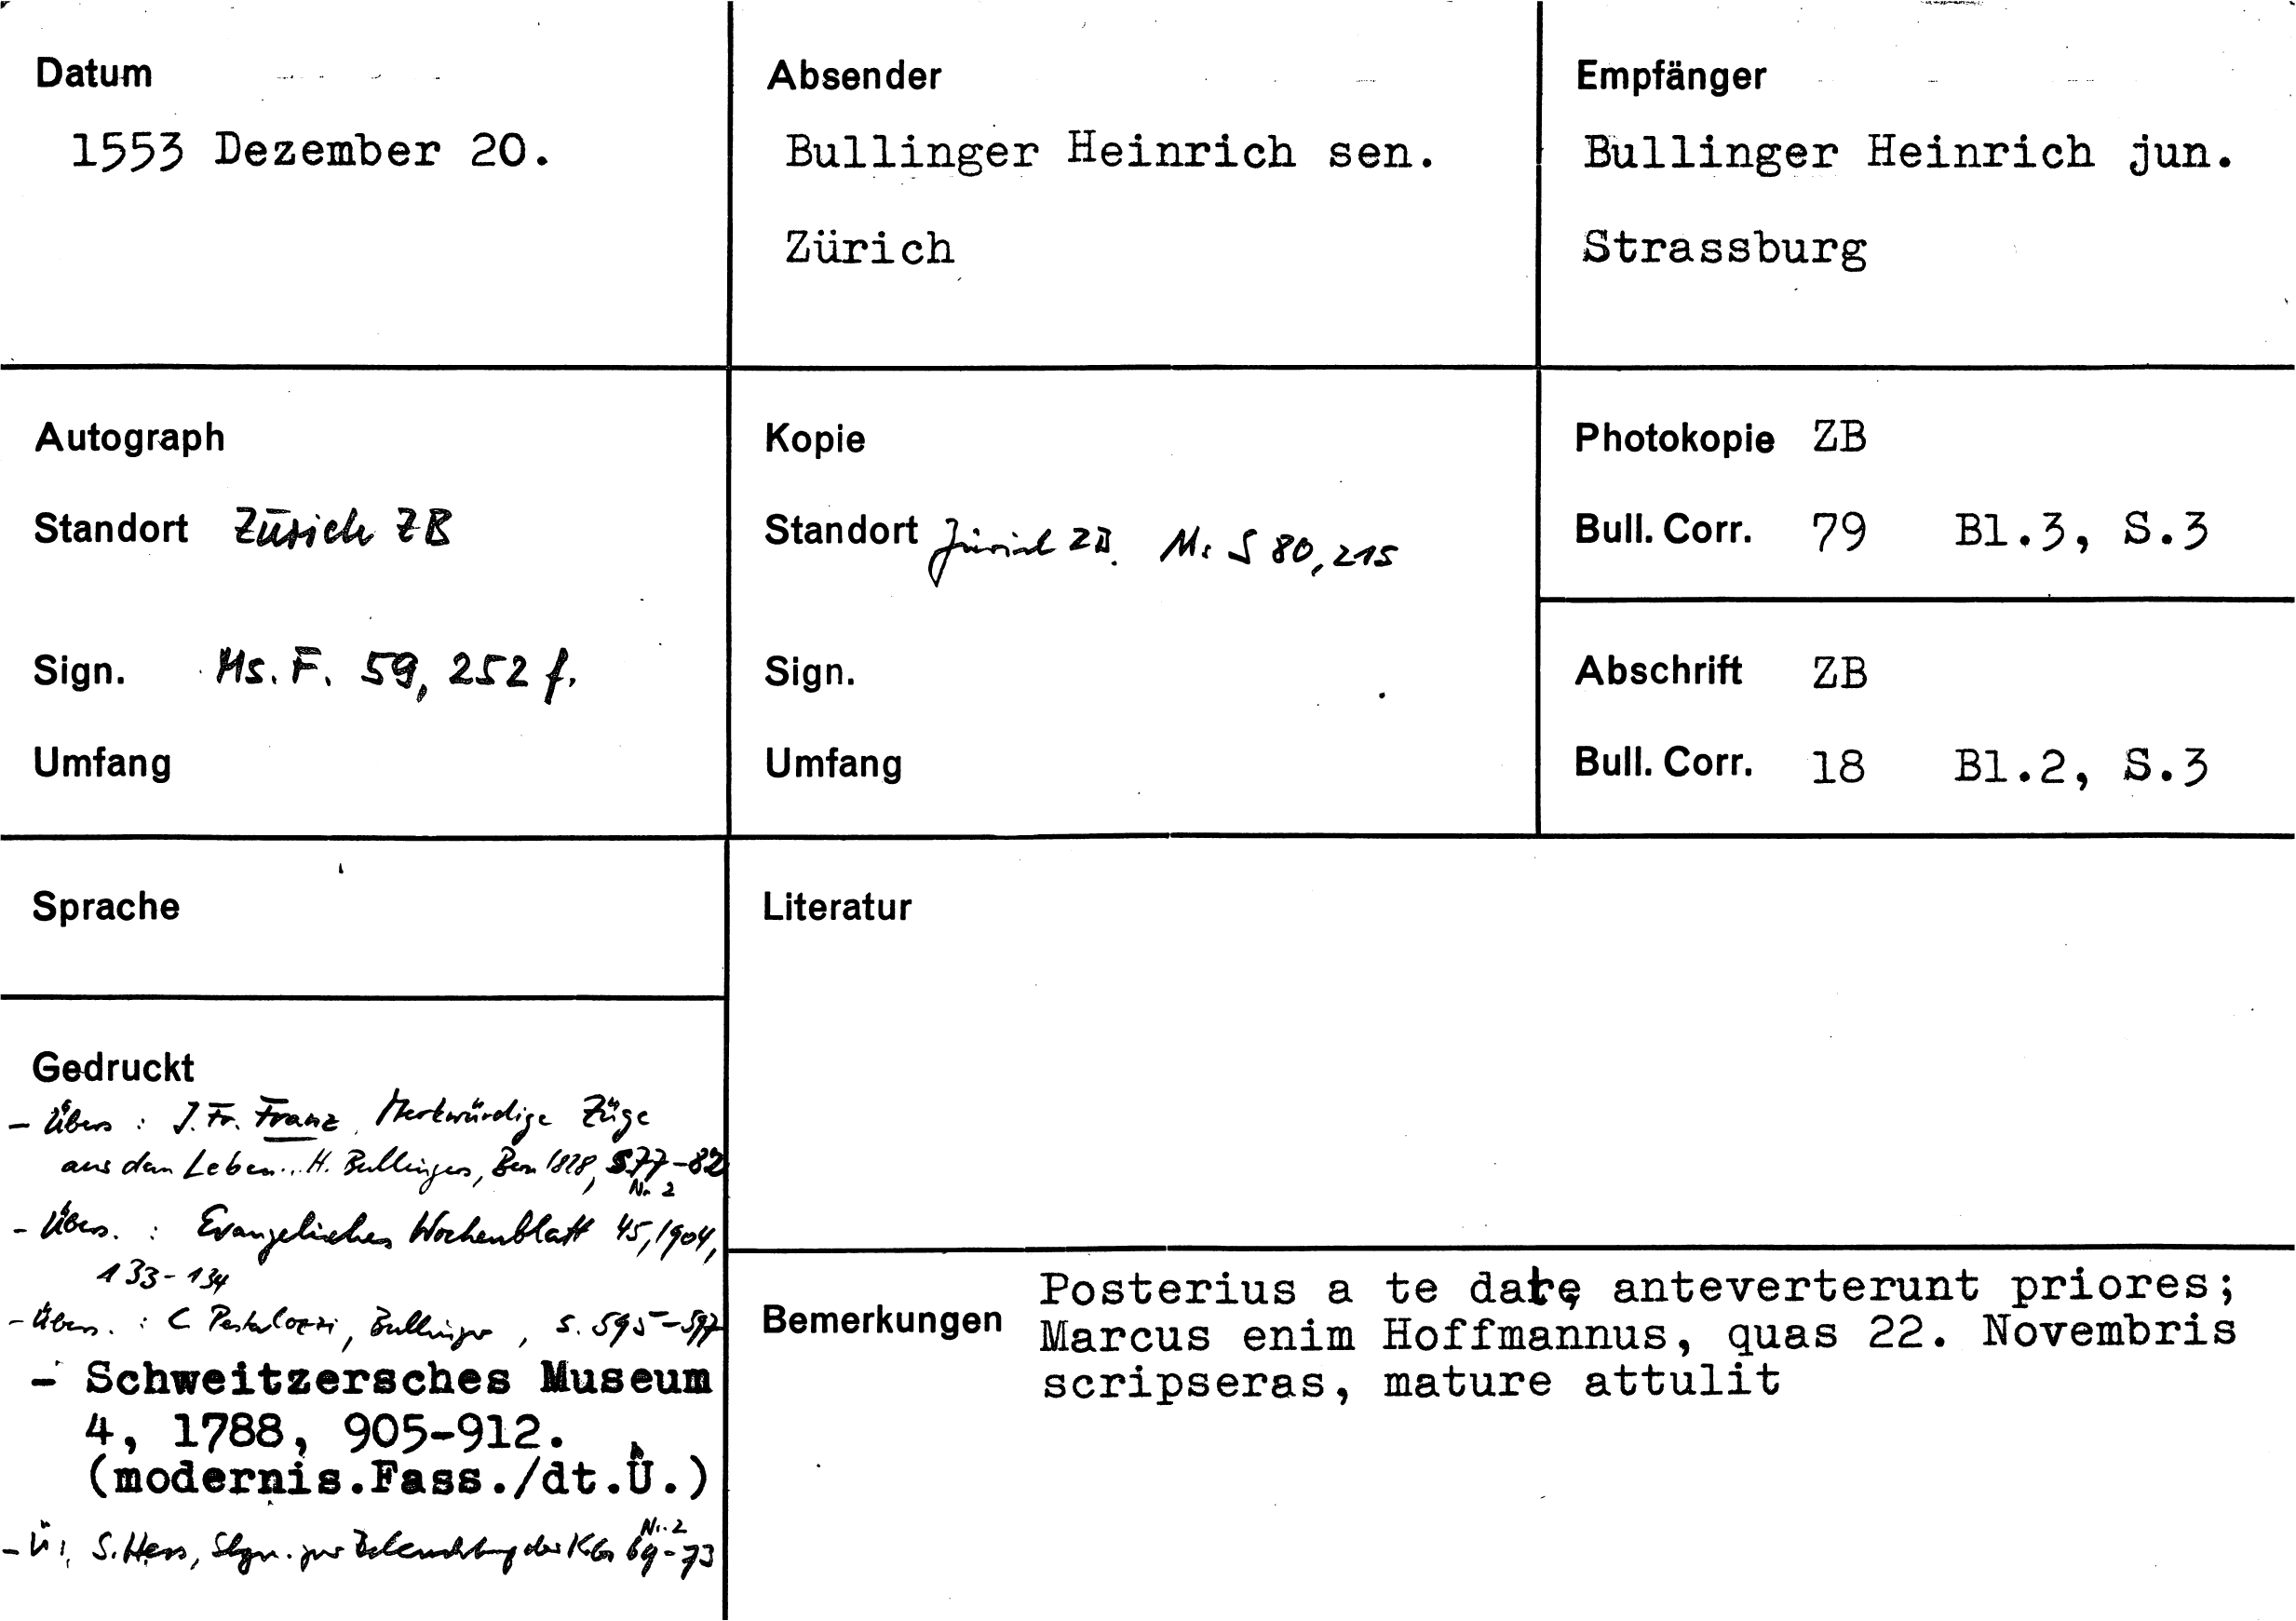 Datum
1553 Dezember 20.
Absender
Bullinger Heinrich sen.
Zürich
Empfänger
Bullinger Heinrich jun.
Strassburg
Autograph
Standort Zürich ZB
Sign. Ms. F. 59, 252 f.
Umfang
Kopie
Standort Zürich ZB. Ms S 80, 215
Sign.
Umfang
Photokopie ZB
Bull. Corr. 79 Bl.3, S.3
Abschrift ZB
Bull. Corr. 18 Bl.2, S.3
Sprache
Literatur
Gedruckt
- Übers : J. Fr. Franz, Merkwürdige Züge
aus dem Leben... H. Bullingers, Bern 1828, S77-82
Nr. 2
- Übers. : Evangelisches Wochenblatt 45, 1904,
133-134
- Übers. : C Pestalozzi, Bullinger, S. 595-597
- Schweitzersches Museum
4, 1788, 905-912.
(modernis.Fass./dt.Ü.)
Nr. 2
- Ü: S. Hess, Slgn. zur Beleuchtung der KG 69-73
Bemerkungen
Posterius a te datę anteverterunt priores;
Marcus enim Hoffmannus, quas 22. Novembris
scripseras, mature attulit